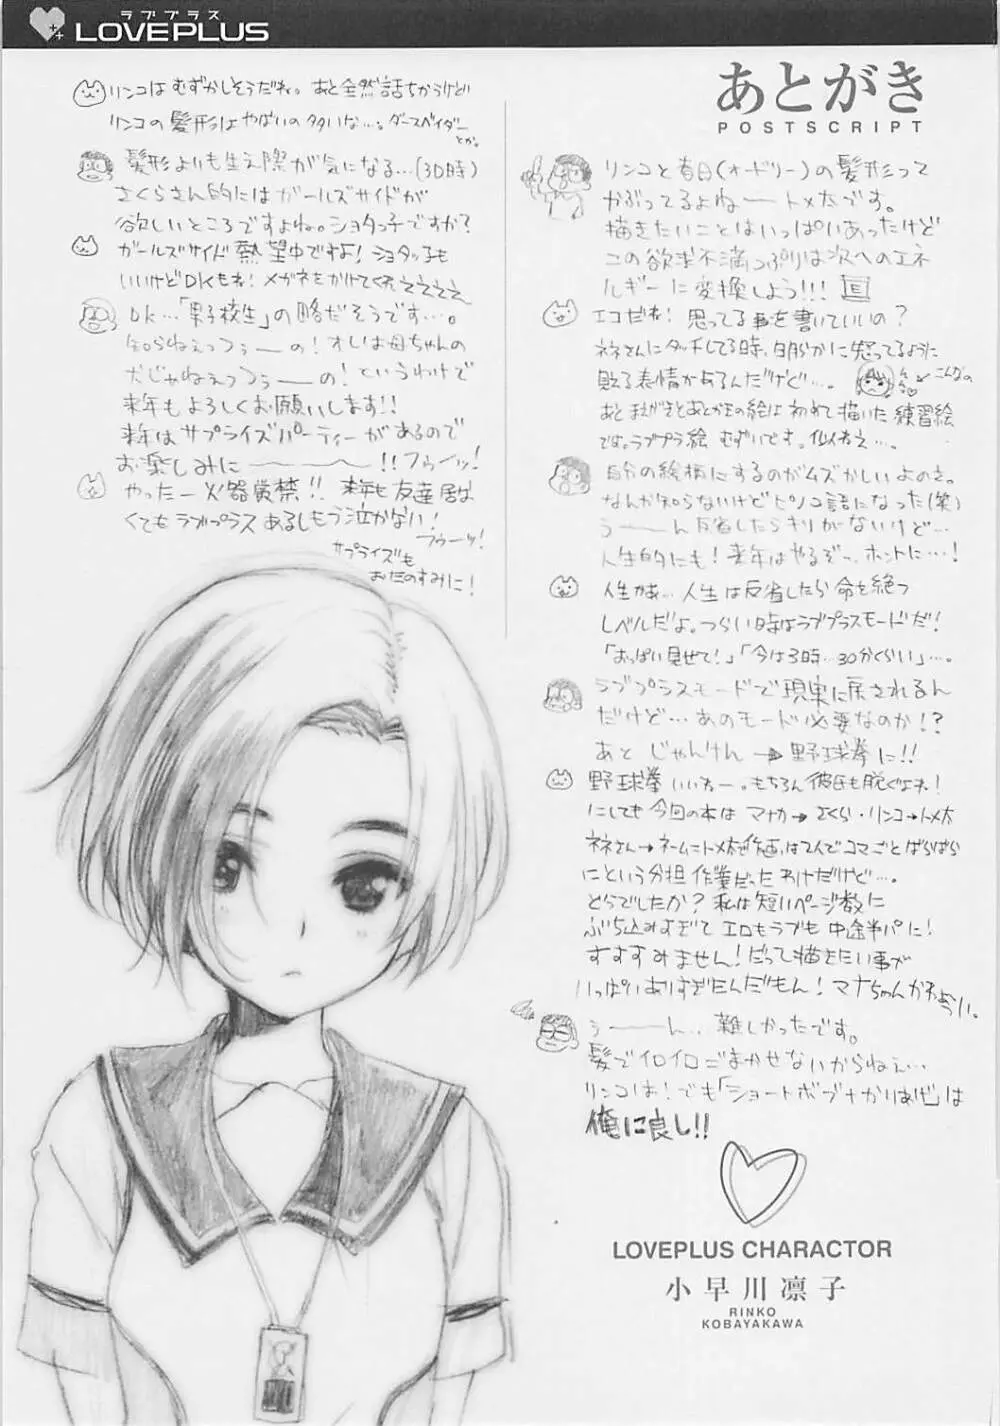 ラブプラス
LOVEPLUS
あとがき
POSTSCRIPT
リンコと春日(オードリー)の髪形って
かぶってるよねートメ太です。
描きたいことはいっぱいあったけど
この欲求不満っぷりは次へのエネ
ルギーに変換しよう!!!
エコだね! 思ってる事を書いていいの?
ネネさんにタッチしてる時、明らかに怒ってるように
見える表情があるんだけど…。
こんなの
あとまえがきとあとがきの絵は初めて描いた練習絵
です。ラブプラ絵 むずいです。似ねえ…。
自分の絵柄にするのがムズかしいよのさ。
なんか知らないけどピノコ語になった(笑)
うーーん反省したらキリがないけど…
人生的にも! 来年はやるぞー、ホントに…!
人生かぁ… 人生は反省したら命を絶つ
レベルだよ。つらい時はラブプラスモードだ!
「おっぱい見せて!」「今は3時…30分くらい」…。
ラブプラスモードで現実に戻されるん
だけど…あのモード必要なのか!?
あと じゃんけん → 野球拳に!!
野球拳いいねー。もちろん彼氏も脱ぐよね!
にしても今回の本は マナカ→さくら・リンコ→トメ太
ネネさん→ネームニトメ太で作画は2人でコマごとばらばら
にという分担作業だったわけだけど…。
どうでしたか? 私は短いページ数に
ぶち込みすぎて エロもラブも 中途半パに!
すすすみません! だって描きたい事が
いっぱいありすぎたんだもん! マナちゃんかわようい。
うーーん… 難しかったです。
髪でイロイロごまかせないからねえ…
リンコは! でも「ショートボブ+かりあげ」は
俺に良し!!
リンコはむずかしそうだね。あと全然話ちがうけど
リンコの髪形はやばいの多いな…。ダースベイダー
とか。
髪形よりも生え際が気になる…(3D時)
さくらさん的にはガールズサイドが
欲しいところですよね。ショタっ子ですか?
ガールズサイド熱望中ですよ! ショタっ子も
いいけどDKもね! メガネをかけてくれええええ
DK…「男子校生」の略だそうです…。
知らねえっつぅーの! オレは母ちゃんの
犬じゃねえっつぅーの! というわけで
来年もよろしくお願いします!!
来年はサプライズパーティーがあるので
お楽しみにーーー!! フゥーッ!
やったー火器厳禁!! 来年も友達居な
くてもラブプラスあるしもう泣かない!
フゥーッ!
サプライズも
おたのすみに!
LOVEPLUS CHARACTOR
小早川凛子
RINKO
KOBAYAKAWA